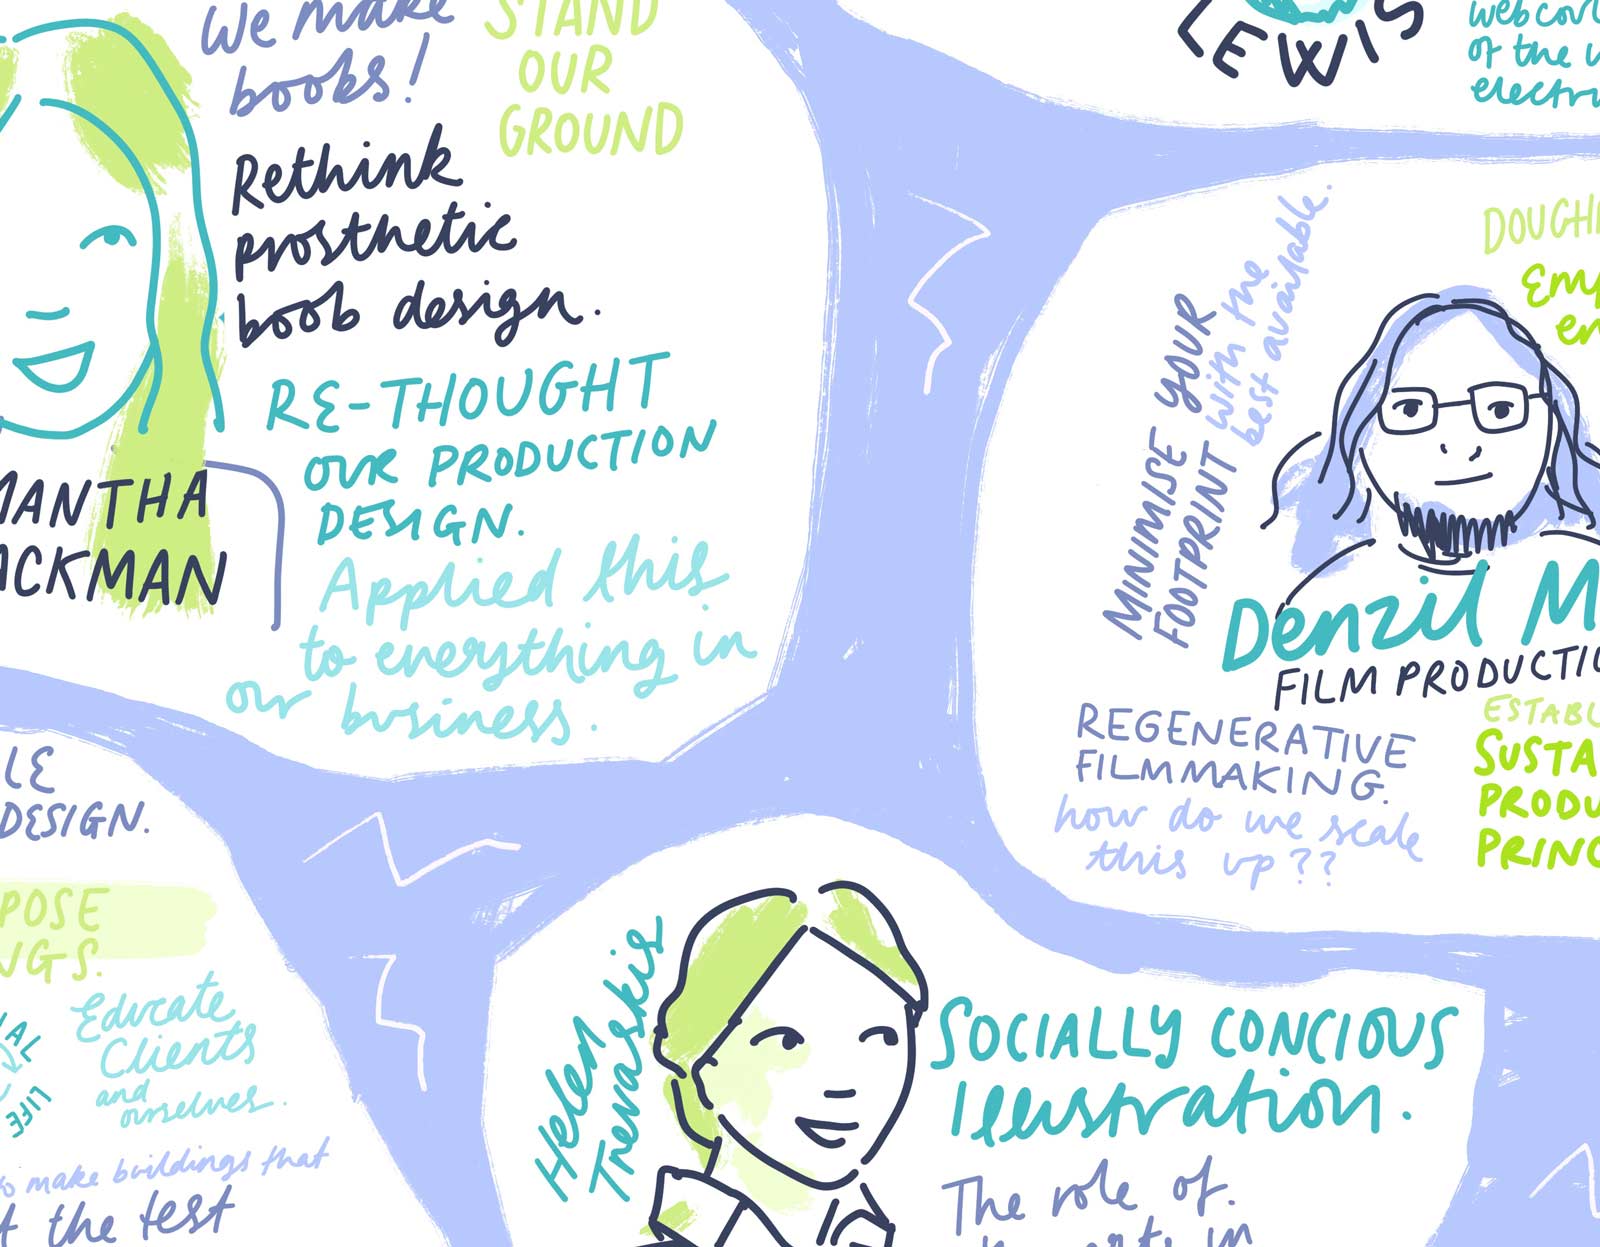 We make
books!
STAND
OUR
GROUND
Rethink
prosthetic
boob design.
RE-THOUGHT
OUR PRODUCTION
DESIGN.
Applied this
to everything in
our business.
MANTHA
ACKMAN
LEWIS
of the
MINIMISE YOUR
FOOTPRINT with the
best available.
DOUGH
Emp
en
Denzil M
FILM PRODUCTIO
REGENERATIVE
FILMMAKING.
how do we scale
this up??
ESTABL
SUSTA
PRODU
PRINC
LE
DESIGN.
POSE
NGS.
IAL
LIFE
Educate
Clients
and
ourselves.
to make buildings that
the test
Helen
Trevaskis
SOCIALLY CONCIOUS
Illustration.
The role of.
in